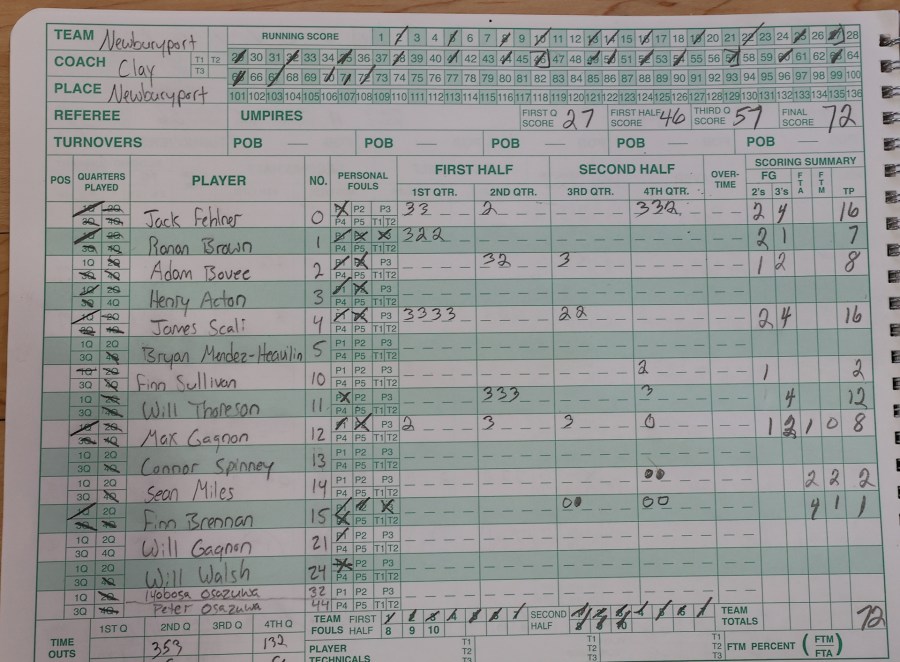 TEAM Newburyport RUNNING SCORE 1 2 3 4 5 6 7 8 9 10 11 12 13 14 15 16 17 18 19 20 21 22 23 24 25 26 27 28
COACH Clay T1 T2 T3 29 30 31 32 33 34 35 36 37 38 39 40 41 42 43 44 45 46 47 48 49 50 51 52 53 54 55 56 57 58 59 60 61 62 63 64
65 66 67 68 69 70 71 72 73 74 75 76 77 78 79 80 81 82 83 84 85 86 87 88 89 90 91 92 93 94 95 96 97 98 99 100
PLACE Newburyport 101 102 103 104 105 106 107 108 109 110 111 112 113 114 115 116 117 118 119 120 121 122 123 124 125 126 127 128 129 130 131 132 133 134 135 136
REFEREE UMPIRES FIRST Q SCORE 27 FIRST HALF SCORE 46 THIRD Q SCORE 57 FINAL SCORE 72
TURNOVERS POB — POB — POB — POB — POB —
POS QUARTERS PLAYED PLAYER NO. PERSONAL FOULS FIRST HALF SECOND HALF OVER-TIME SCORING SUMMARY
1ST QTR. 2ND QTR. 3RD QTR. 4TH QTR. FG 2's 3's FTA FTM TP
Jack Fehlner 0 P2 P3 P4 P5 T1 T2 33 2 332 2 4 16
Ronan Brown 1 P4 P5 T1 T2 322 2 1 7
1Q Adam Bovee 2 P3 P4 P5 T1 T2 32 3 1 2 8
4Q Henry Acton 3 P3 P4 P5 T1 T2
James Scali 4 P3 P4 P5 T1 T2 3333 22 2 4 16
1Q 2Q 3Q Bryan Mendez-Heavilin 5 P1 P2 P3 P4 P5 T1 T2
3Q Finn Sullivan 10 P1 P2 P3 P4 P5 T1 T2 2 1 2
1Q 3Q Will Thoreson 11 P2 P3 P4 P5 T1 T2 333 3 4 12
Max Gagnon 12 P3 P4 P5 T1 T2 2 3 3 0 1 2 1 0 8
1Q 2Q 3Q Connor Spinney 13 P1 P2 P3 P4 P5 T1 T2
1Q 2Q 3Q Sean Miles 14 P1 P2 P3 P4 P5 T1 T2 00 2 2 2
2Q Finn Brennan 15 P5 T1 T2 00 00 4 1 1
1Q 2Q 3Q 4Q Will Gagnon 21 P2 P3 P4 P5 T1 T2
1Q 2Q 3Q Will Walsh 24 P2 P3 P4 P5 T1 T2
1Q Iyobosa Osazuwa 32 P1 P2 P3
3Q Peter Osazuwa 44 P4 P5 T1 T2
TIME OUTS 1ST Q 2ND Q 3RD Q 4TH Q TEAM FOULS FIRST HALF 1 2 3 4 5 6 7 8 9 10 SECOND HALF 1 2 3 4 5 6 7 8 9 10 TEAM TOTALS 72
353 132 PLAYER TECHNICALS T1 T2 T3 T1 T2 T3 T1 T2 T3 FTM PERCENT (FTM FTA)